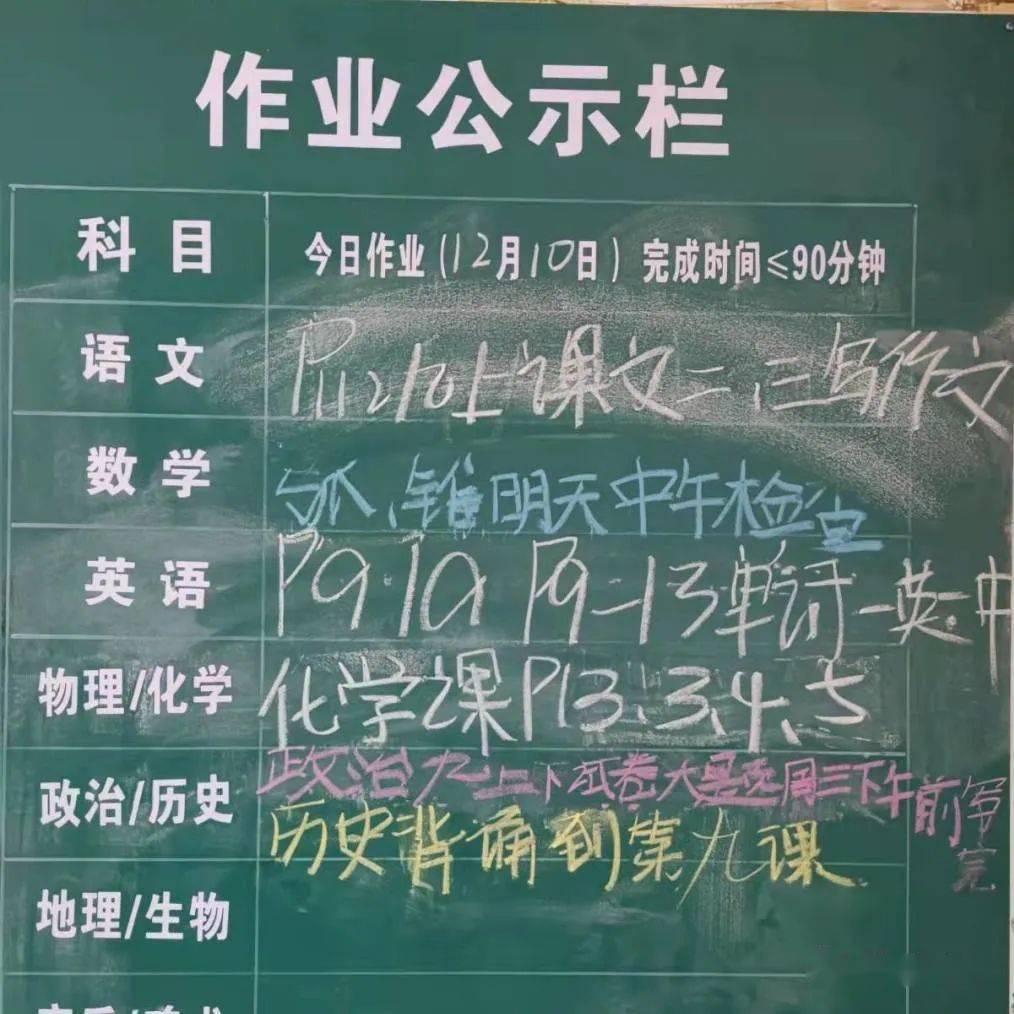 作业公示栏
科目 今日作业(12月10日)完成时间≤90分钟
语文 P112 上课文二、三写作文
数学 弧、锥明天中午检查
英语 P9.10 P9-13单词一英一中
物理/化学 化学课P13、3、4、5
政治/历史 政治九上下试卷大题周三下午前写完
历史背诵到第九课
地理/生物